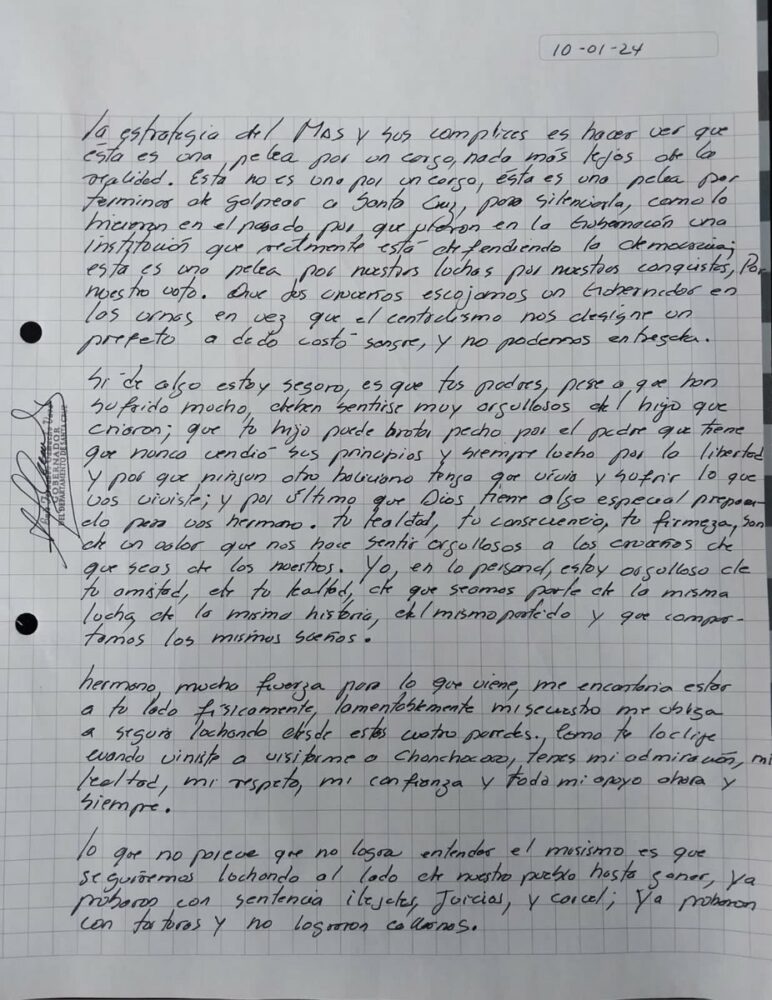 10-01-24
la estrategia del MAS y sus complices es hacer ver que
ésta es una pelea por un cargo, nada más lejos de la
realidad. Esta no es una por un cargo, ésta es una pelea por
terminar de golpear a Santa Cruz, para silenciarla, como lo
hicieron en el pasado por que vieron en la Gobernación una
institución que realmente está defendiendo la democracia;
esta es una pelea por nuestras luchas por nuestras conquistas, Por
nuestro voto. Que los cruceños escojamos un Gobernador en
las urnas en vez que el centralismo nos designe un
prefeto a dedo costó sangre, y no podemos entregarla.
Si de algo estoy seguro, es que tus padres, pese a que han
sufrido mucho, deben sentirse muy orgullosos del hijo que
criaron; que tu hijo puede brotar pecho por el padre que tiene
que nunca vendió sus principios y siempre lucho por la libertad
y por que ningun otro boliviano tenga que vivir y sufrir lo que
vos viviste; y por último que Dios tiene algo especial prepara-
do para vos hermano. tu lealtad, tu consecuencia, tu firmeza, son
de un valor que nos hace sentir orgullosos a los cruceños de
que seas de los nuestros. Yo, en lo personal, estoy orgulloso de
tu amistad, de tu lealtad, de que seamos parte de la misma
lucha, de la misma historia, del mismo partido y que compar-
tamos los mismos sueños.
GOBERNADOR
DEL DEPARTAMENTO DE SANTA CRUZ
hermano, mucha fuerza para lo que viene, me encantaria estar
a tu lado físicamente, lamentablemente mi secuestro me obliga
a seguir luchando desde estas cuatro paredes. Como te lo dije
cuando viniste a visitarme a Chonchocoro, tenes mi admiración, mi
lealtad, mi respeto, mi confianza y todo mi apoyo ahora y
siempre.
lo que no parece que no logra entender el masismo es que
seguiremos luchando al lado de nuestro pueblo hasta ganar, ya
probaron con sentencia ilegales, Juicios, y carcel; ya probaron
con torturas y no lograron callarnos.